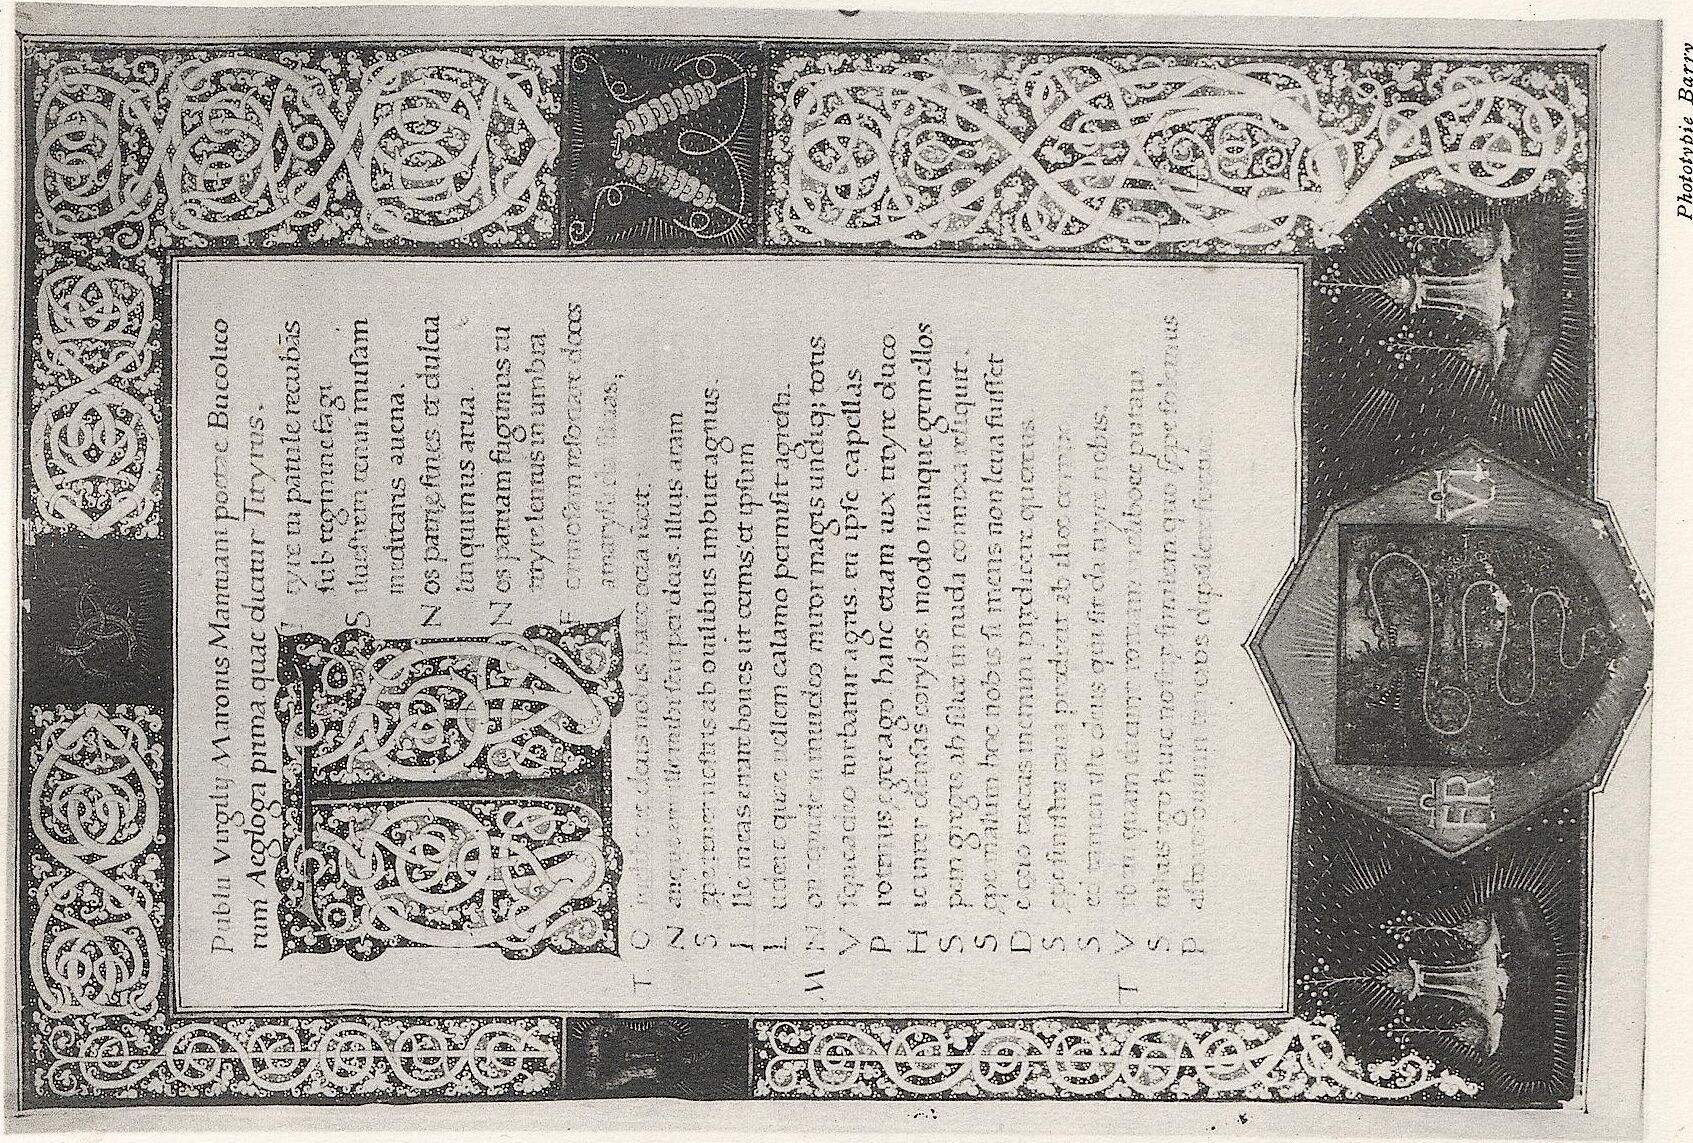 Publii Virgilij Maronis Mantuani poetae Bucolico
rum Aegloga prima quae dicitur Tityrus.
Tityre tu patule recubãs
sub tegmine fagi
Siluestrem tenui musam
meditaris auena.
Nos patriae fines et dulcia
linquimus arua.
Nos patriam fugimus tu
tityre lentus in umbra
Formosam resonare doces
amaryllida siluas;
T O melibee deus nobis haec ocia fecit.
Nanque erit ille mihi semper deus. illius aram
Sepe tener nostris ab ouilibus imbuet agnus.
Ille meas errare boues ut cernis et ipsum
Ludere quae uellem calamo permisit agresti.
M Non equidem inuideo miror magis undiq; totis
Vsque adeo turbatur agris. en ipse capellas
Protinus eger ago hanc etiam uix tityre duco
Hic inter densas corylos. modo nanque gemellos
Spem gregis ah silice in nuda connixa reliquit.
Sepe malum hoc nobis si mens non leua fuisset
De celo tactas memini predicere quercus
Sepe sinistra caua predixit ab ilice cornix
Sed tamen iste deus qui sit da tityre nobis.
T Vrbem quam dicunt romam meliboee putaui
Stultus ego huic nostre similem quo sepe solemus
Pastores ouium teneros depellere foetus
HR VI
Phototypie Barry